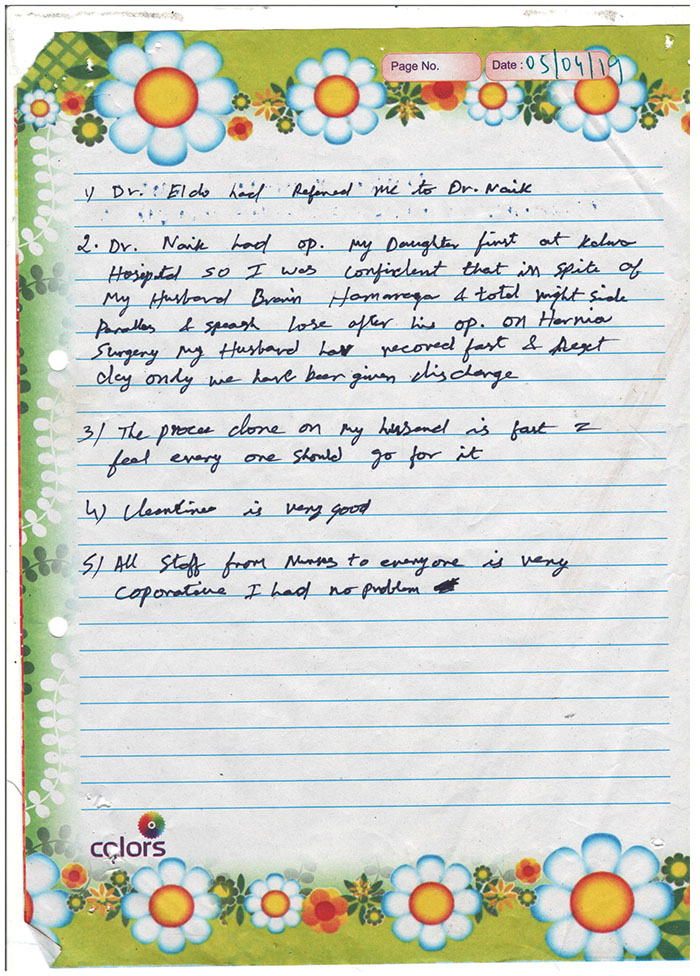 Page No.
Date : 05/04/19
1) Dr. Eldo had Refered me to Dr. Naik
2. Dr. Naik had op. my Daughter first at Kalwa
Hosepital so I was confident that in spite of
My Husband Brain Hamarrega & total right side
Paralles & speach lose after his op. on Hernia
Surgery my Husband has recored fast &
day only we have been given discharge
3) The proces done on my husband is fast
feel every one should go for it
4) Cleantines is very good
5) All Staff from Nurses to everyone is very
coporative I had no problem
colors